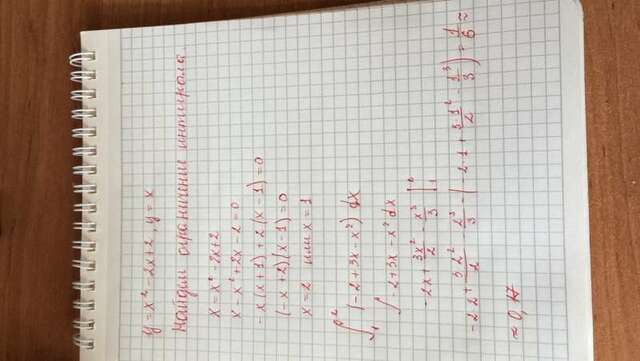 y = x² - 2x + 2, y = x
Найдем ограничение интеграла.
x = x² - 2x + 2
x - x² + 2x - 2 = 0
- x (x + 1) + 2 (x - 1) = 0
(-x + 2)(x - 1) = 0
x = 2 или x = 1
∫₁² (-2 + 3x - x²) dx
∫ -2 + 3x - x² dx
-2x + 3x²/2 - x³/3 |₁²
-2·2 + 3·2²/2 - 2³/3 - (-2·1 + 3·1²/2 - 1³/3) = 1/6 ≈
≈ 0,17